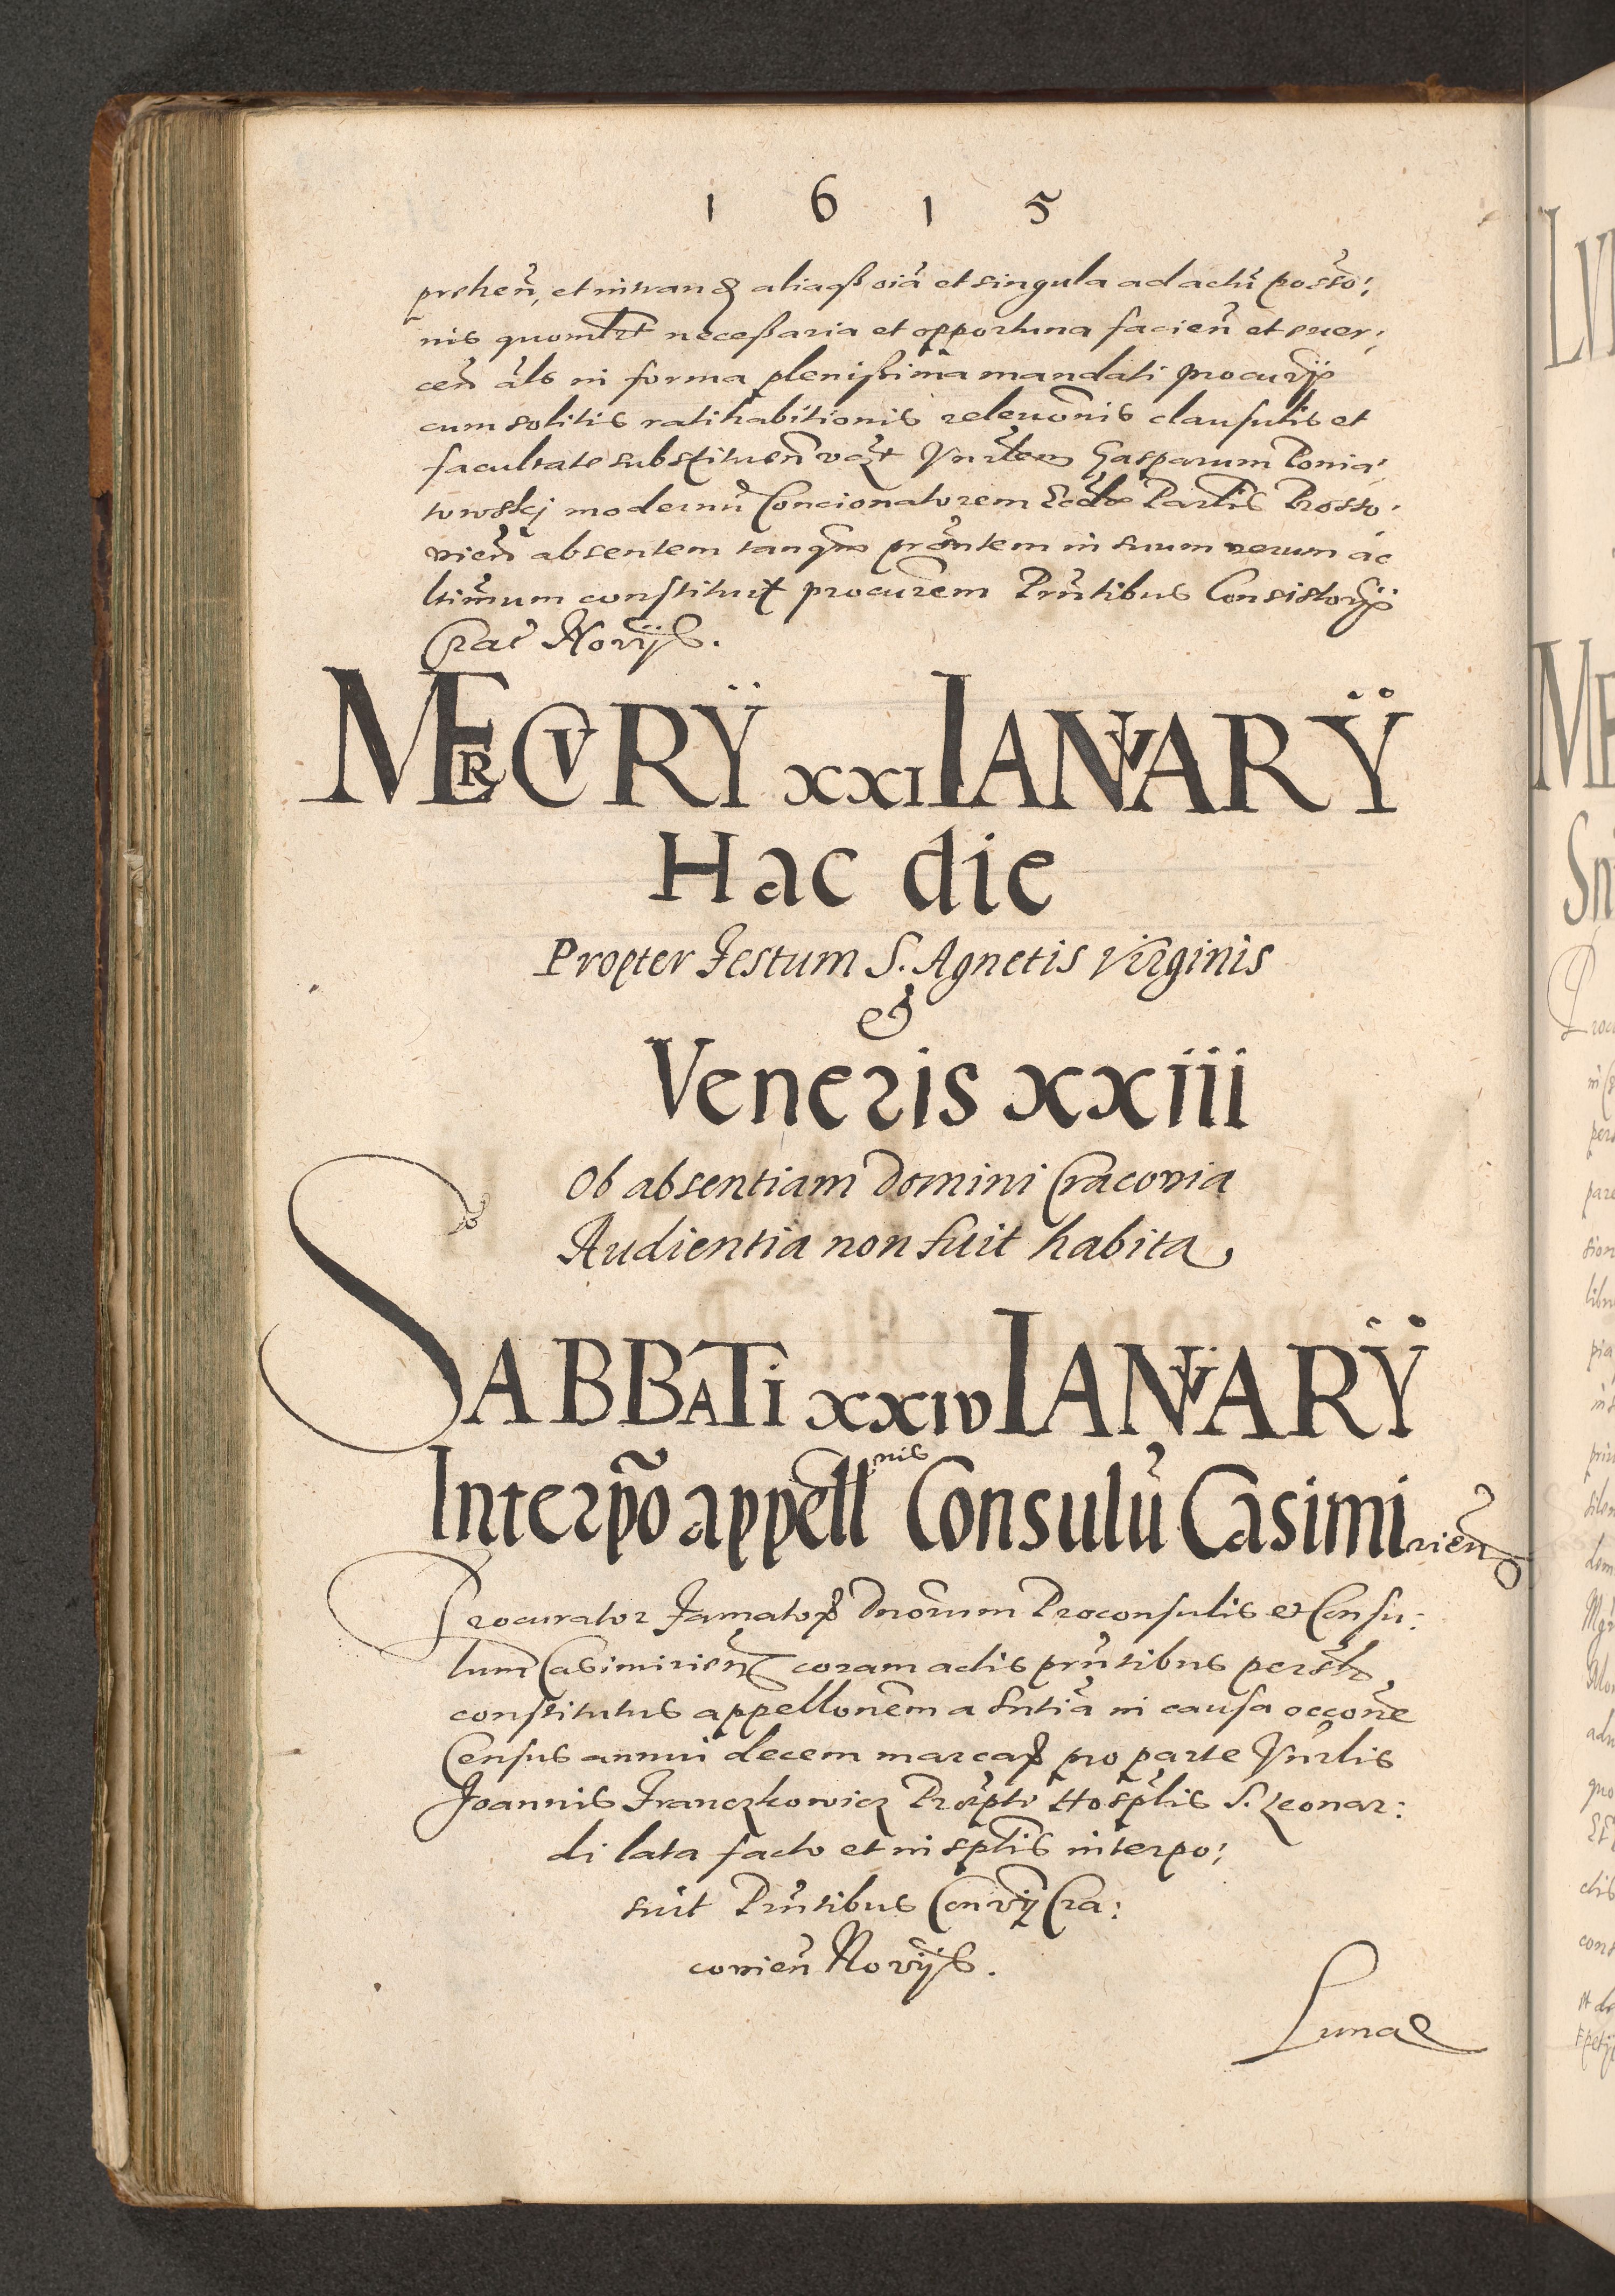 1 6 1 5
prehen̄, et intran̄ aliaqꝫ oīa et singula ad actū posso:
nis quomlt necessaria et opportuna facien̄ et exer:
cen̄ als in forma plenissima mandati procurij
cum solitis ratihabitionis relevōnis clausulis et
facultate substituen̄ Vnrlem Gasparum Ponia:
towskj modernū Concionatorem Ecclæ Parlis Prosso:
vien̄ absentem tanqm prāntem in suum verum ac
ltimum constituit procurem Prn̄tibus Consistorij
Crac̄ Norijs.
MERCVRIJ XXI IANVARIJ
Hac die
Propter Festum S. Agnetis Virginis
&
Veneris xxiii
Ob absentiam Domini Cracovia
Audientia non fuit habita
SABBATi xxiv IANVARIJ
Interpō appellnis Consulū Casimirien̄
Procurator Famatoꝝ Dnōrum Proconsulis et Consu:
lum Casimirien̄ coram actis prn̄tibus persolr
constitutus appellonēm a Sntiā in causa occōne
Census annui decem marcaꝝ pro parte Vnrlis
Joannis Franczkowicz Prǣpti Hosplis S. Leonar:
di lata facto et in sptis interpo:
suit Prn̄tibus Conrij Cra:
covien̄ Norijs.
Lunae